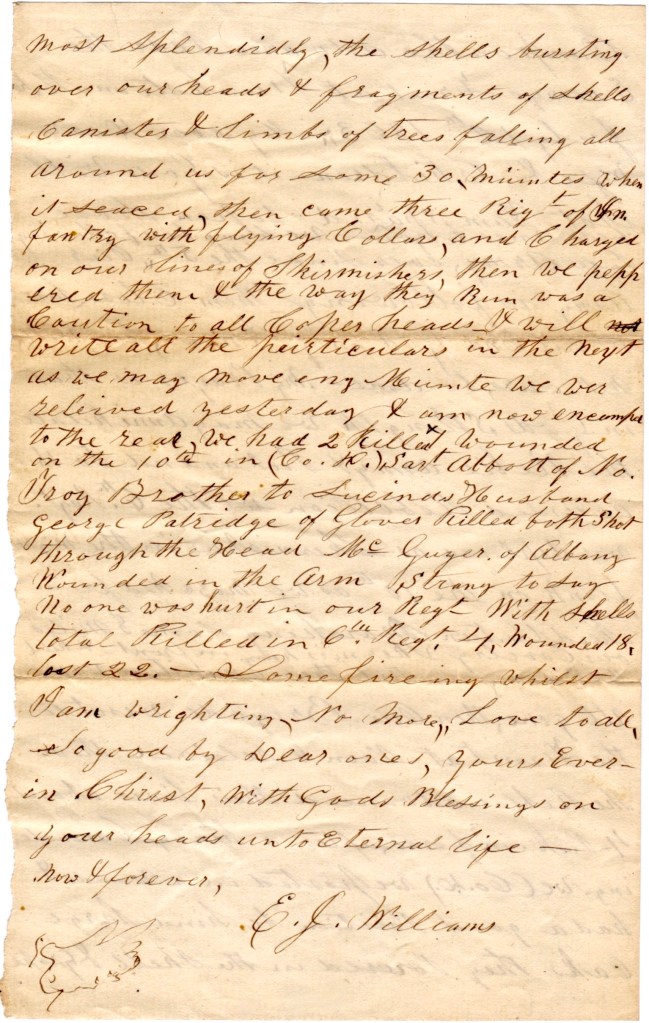 most splendidly, the shells bursting
over our heads & fragments of shells
Canister & limbs of trees falling all
around us for some 30, miuntes when
it seaced, then came three Rigt of Inn
fantry with flying Collars, and Charged
on our lines of Skirmishers, then we pepp
ered them & the way they Run was a
Caution to all Coper heads I will not
write all the peirticulars in the next
as we may move eny Miunte we wer
releived yesterday & am now encamped
to the rear, we had 2 Killed & wounded
on the 10th in (Co. D.) Sart Abbott of No.
Troy Brother to Lucinds Husband
George Patridge of Glover Killed both Shot
through the Head Mc Guyer. of Albany
Wounded in the Arm Strang to say
No one was hurt in our Regt With shells
total Killed in 6th Regt. 4, Wounded 18,
lost 22. — Some fireing whilst
I am wrighting, No More,, Love to all,
So good by Dear ones, yours Ever-
in Christ, With Gods Blessings on
your heads unto Eternal life —
now & forever,
E. J. Williams